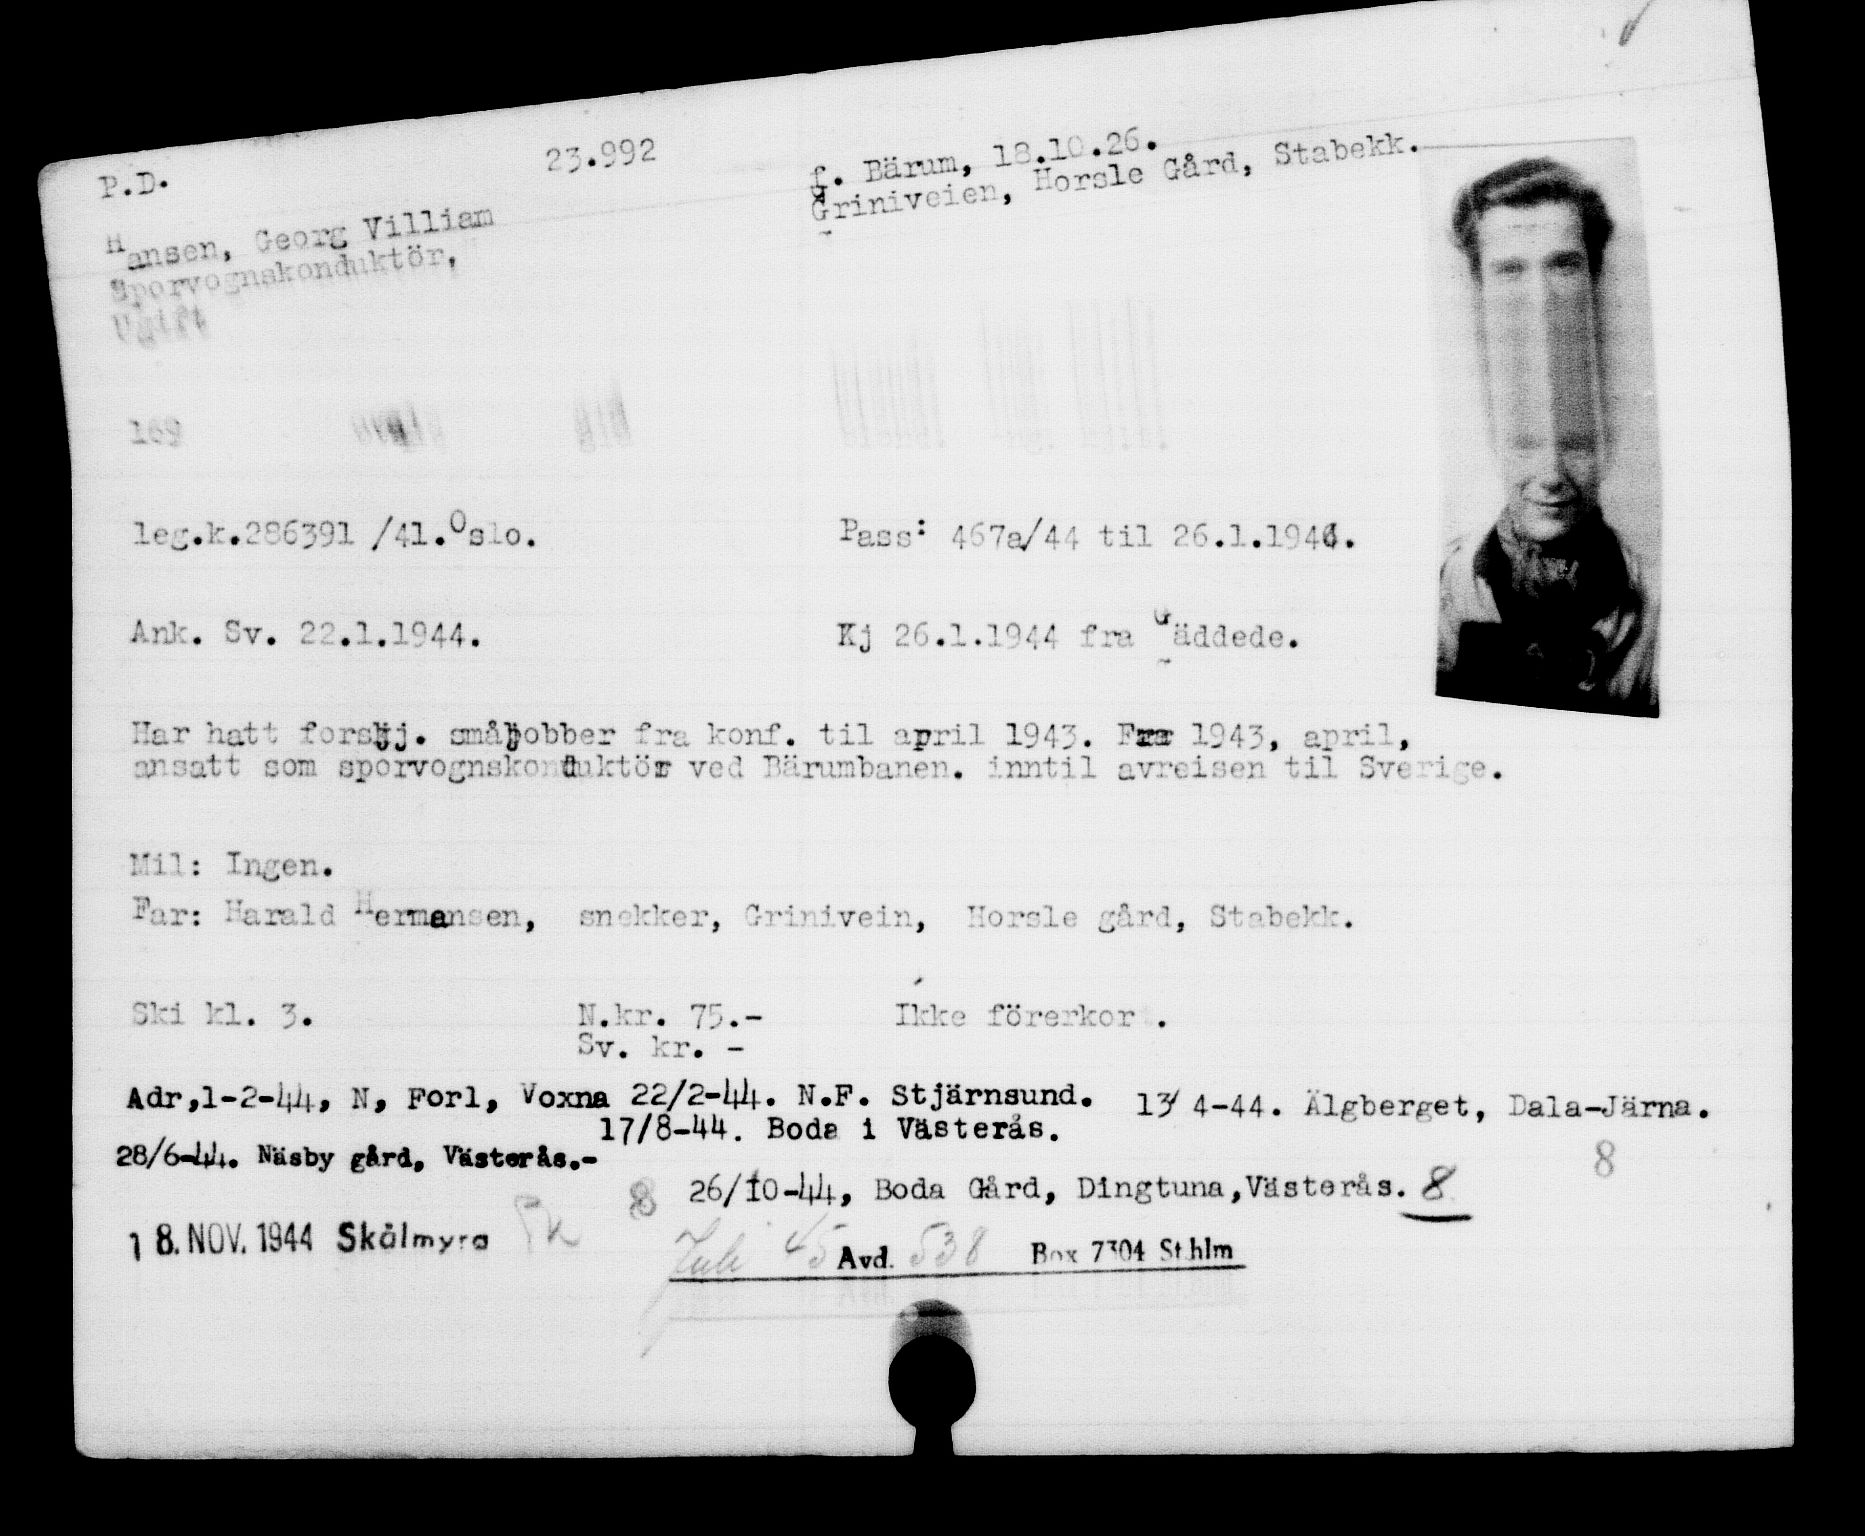 P.D. 23.992 f. Bärum, 18.10.26.
Griniveien, Horsle Gård, Stabekk.
Hansen, Georg Villiam
Sporvognskonduktör,
Ugift
169
leg.k.286391 /41.Oslo. Pass: 467a/44 til 26.1.1946.
Ank. Sv. 22.1.1944. Kj 26.1.1944 fra Gäddede.
Har hatt forskj. småjobber fra konf. til april 1943. Fra 1943, april,
ansatt som sporvognskonduktör ved Bärumbanen. inntil avreisen til Sverige.
Mil: Ingen.
Far: Harald Hermansen, snekker, Grinivein, Horsle gård, Stabekk.
Ski kl. 3. N.kr. 75.- Ikke förerkor .
Sv. kr. -
Adr,1-2-44, N, Forl, Voxna 22/2-44. N.F. Stjärnsund. 13/4-44. Älgberget, Dala-Järna.
17/8-44. Boda i Västerås.
28/6-44. Näsby gård, Västerås.- 8
8 26/10-44, Boda Gård, Dingtuna,Västerås. 8
18. NOV. 1944 Skålmyra
Juli 45 Avd. 538 Box 7304 Sthlm